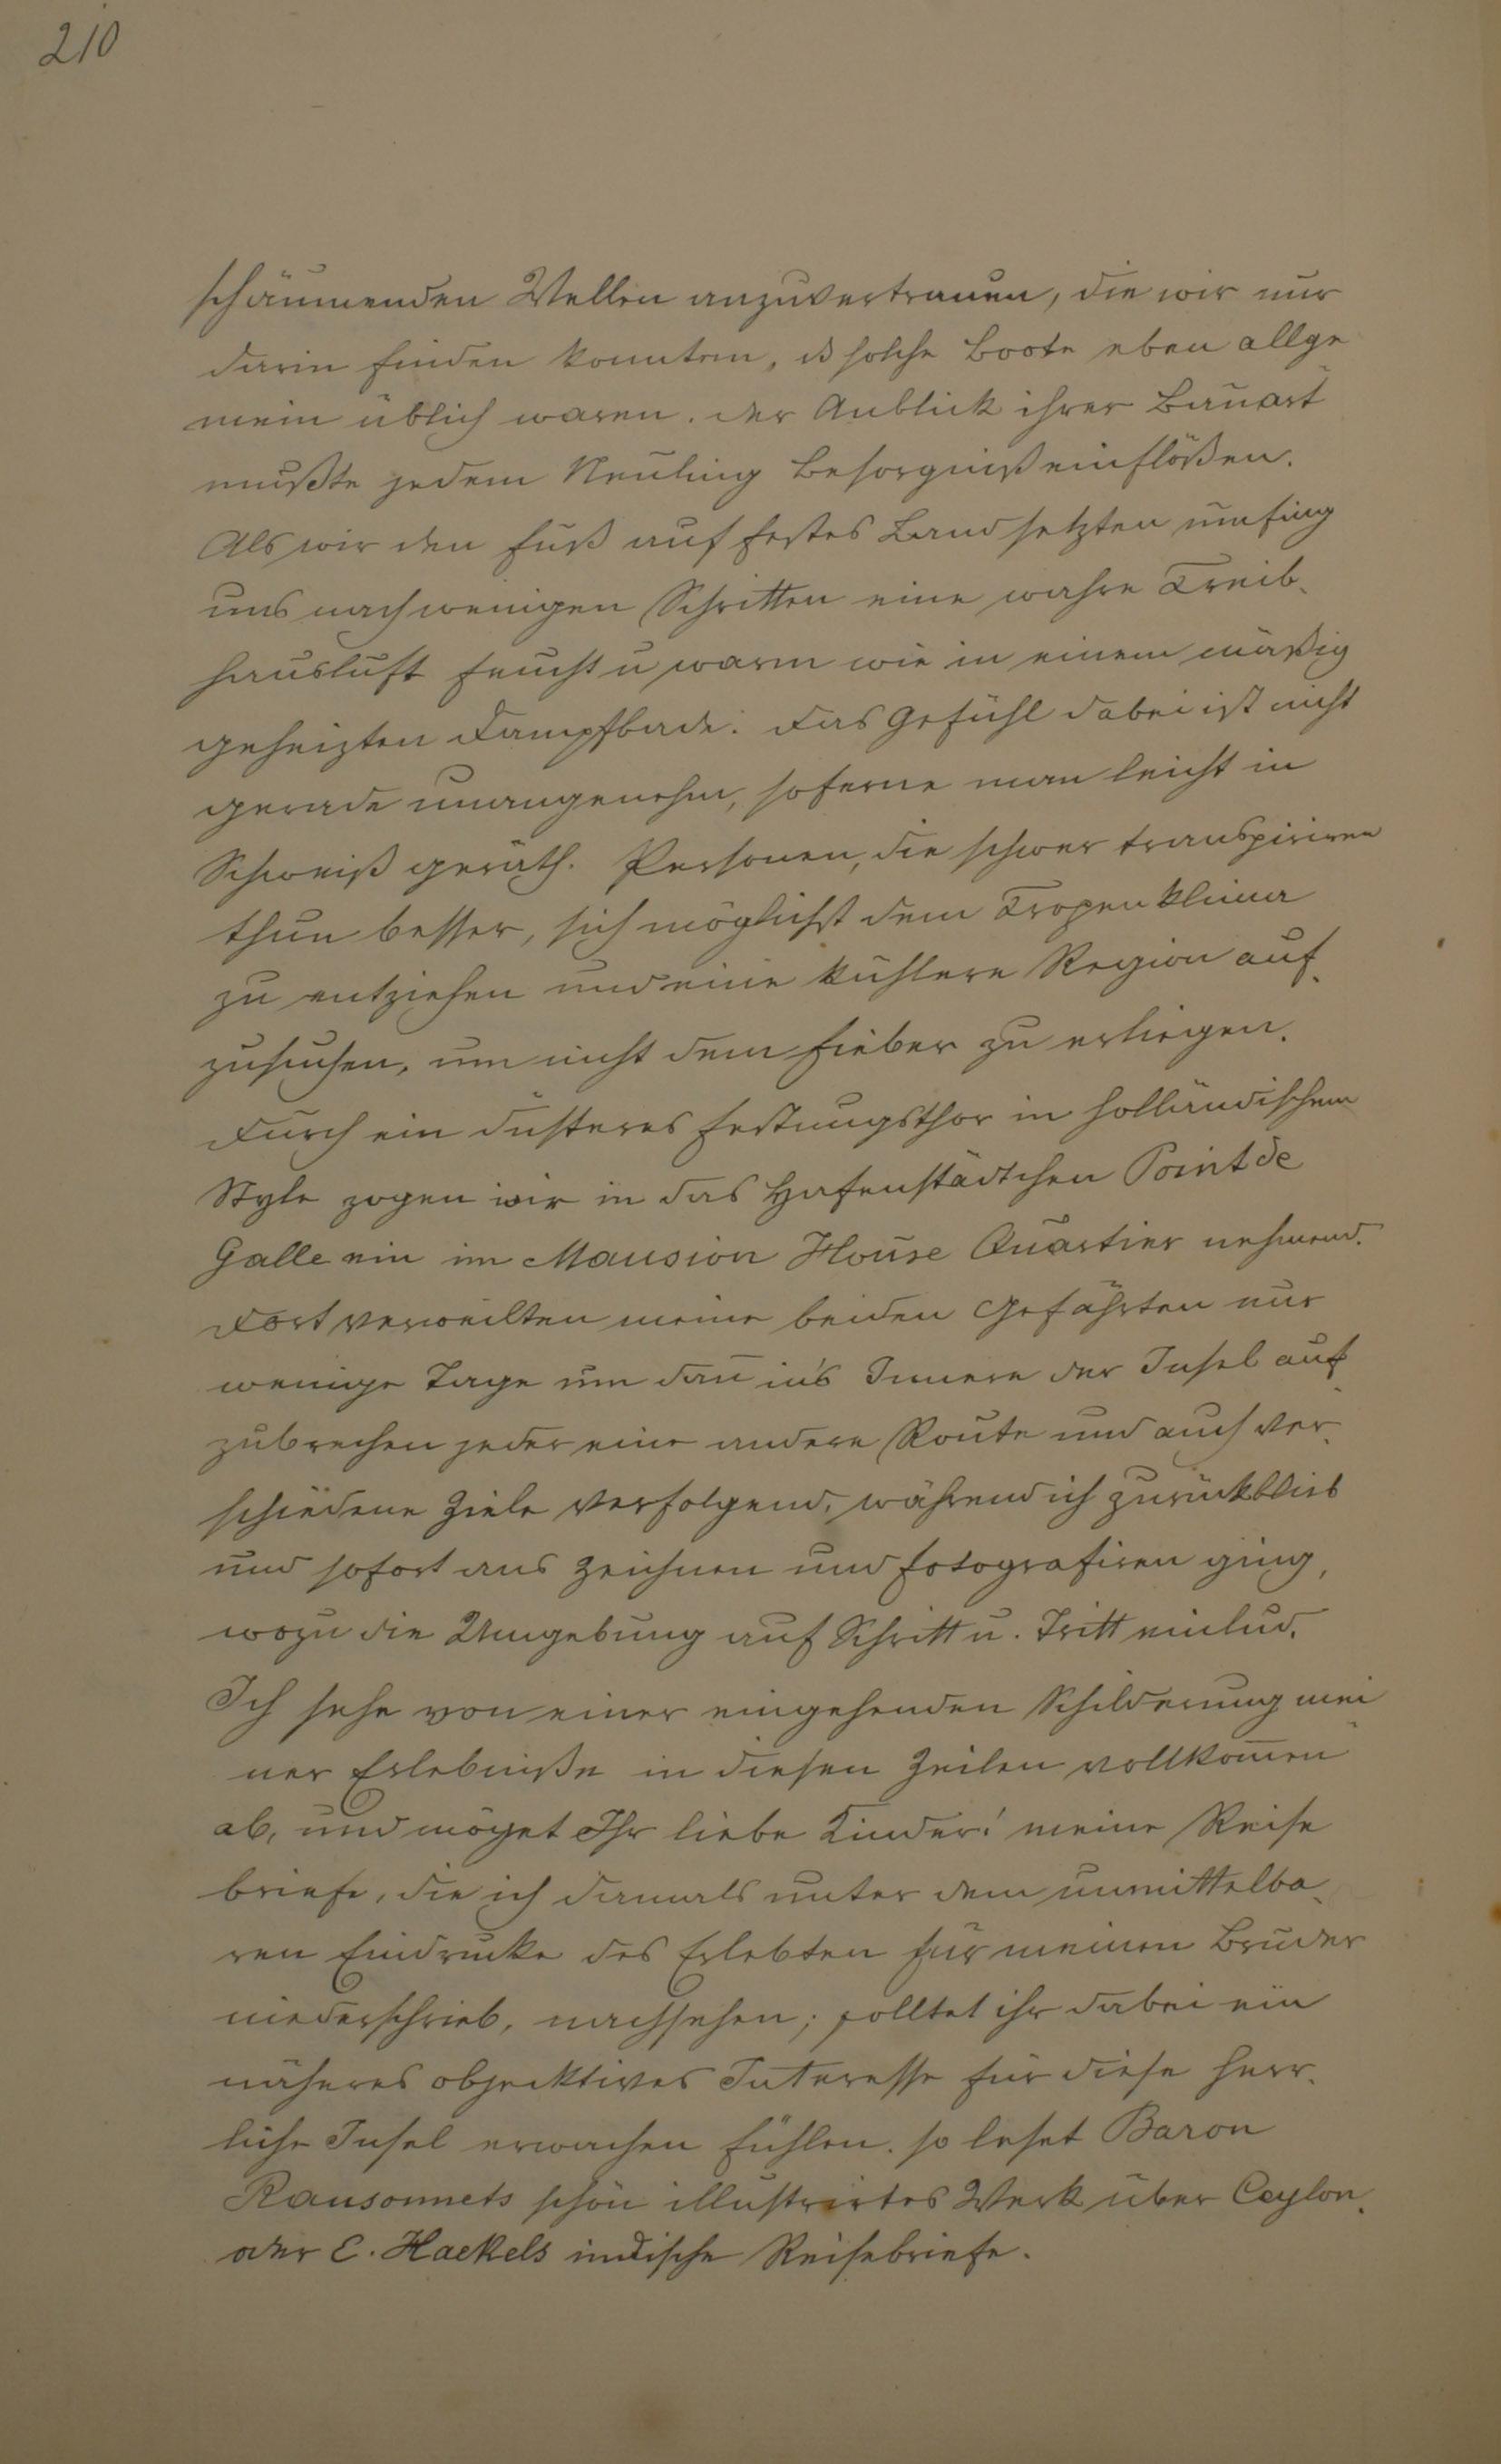 210
schäumenden Wellen anzuvertrauen, die wir nur
darin finden konnten, dß solche Boote eben allge
mein üblich waren. Der Anblick ihrer Bauart
mußte jedem Neuling Besorgniß einflößen.
Als wir den Fuß auf festes Land setzten umfing
uns nach wenigen Schritten eine wahre Treib-
hausluft feucht u warm wie in einem mäßig
geheizten Dampfbade. Das Gefühl dabei ist nicht
gerade unangenehm, soferne man leicht in
Schweiß geräth. Personen, die schwer transpiriren
thun besser, sich möglichst dem Tropenklima
zu entziehen und eine kühlere Region auf-
zusuchen, um nicht dem Fieber zu erliegen.
Durch ein düsteres Festungsthor in holländischem
Style zogen wir in das Hafenstädtchen Point de
Galle ein im Mansion House Quartier nehmend.
Dort verweilten meine beiden Gefährten nur
wenige Tage um dan̄ in's Innere der Insel auf
zubrechen jeder eine andere Route und auch ver-
schiedene Ziele verfolgend, während ich zurückblieb
und sofort ans Zeichnen und Fotografiren ging,
wozu die Umgebung auf Schritt u. Tritt einlud.
Ich sehe von einer eingehenden Schilderung mei
ner Erlebniße in diesen Zeilen vollkom̄en
ab, und möget Ihr liebe Kinder! meine Reise
briefe, die ich damals unter dem unmittelba-
ren Eindrucke des Erlebten für meinen Bruder
niederschrieb, nachsehen; solltet ihr dabei ein
näheres objecktives Interesse für diese herr-
liche Insel erwachen fühlen, so leset Baron
Ransonnets schön illustrirtes Werk über Ceylon,
oder E. Haekels indische Reisebriefe.